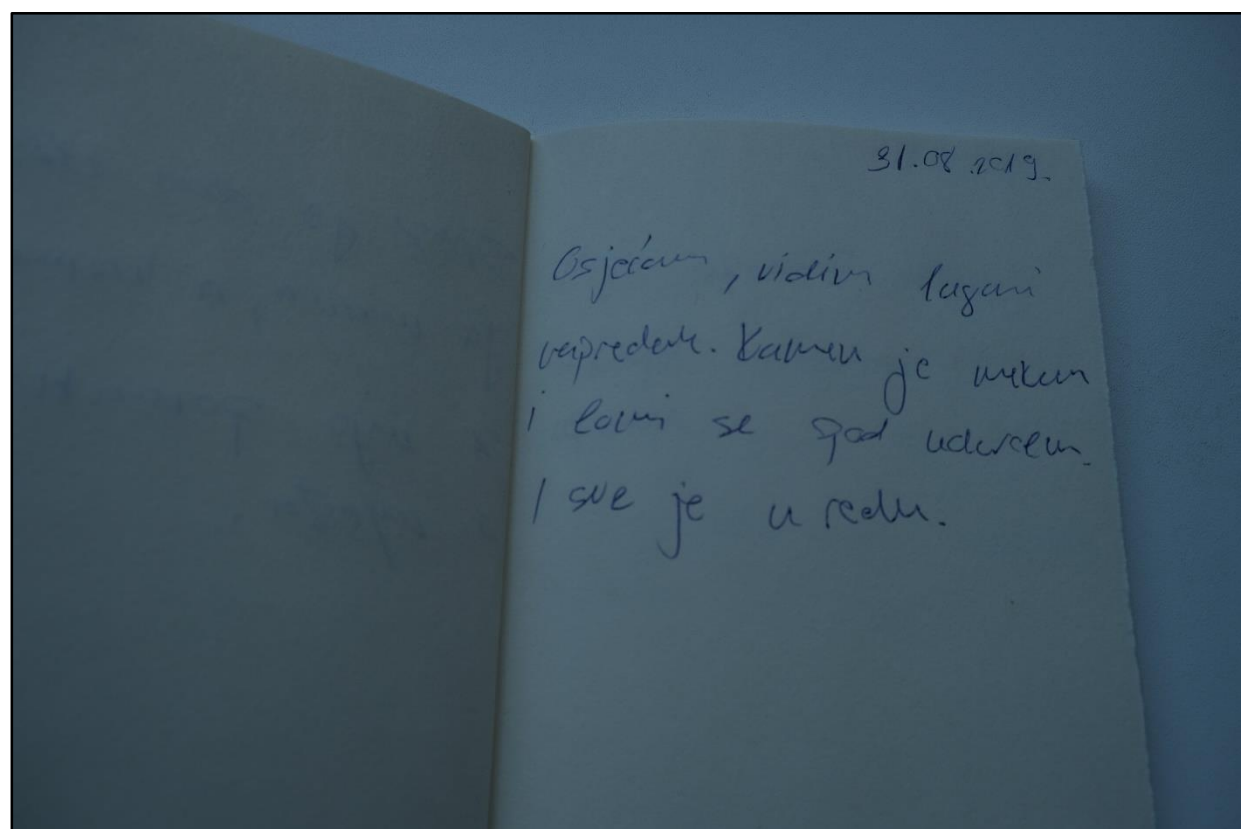 31.08.2019.
Osjećam, vidim lagani
napredak. Kamen je mekan
i lomi se pod udarcem.
I sve je u redu.